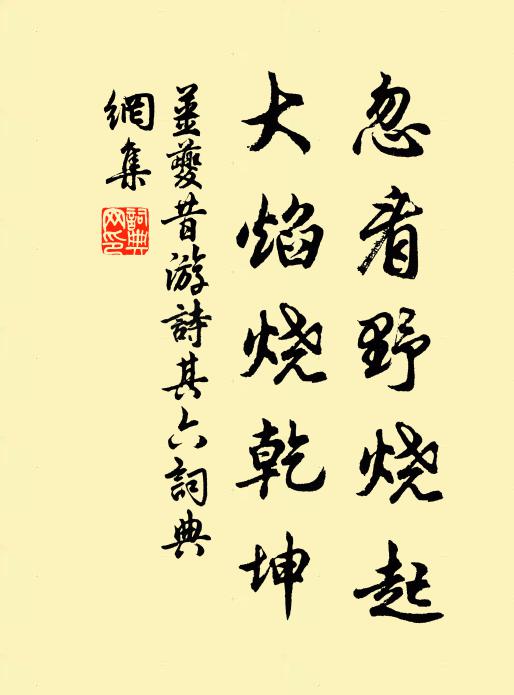 忽看野烧起
大焰烧乾坤
姜夔昔游詩其六詞典
網集
詞典网印